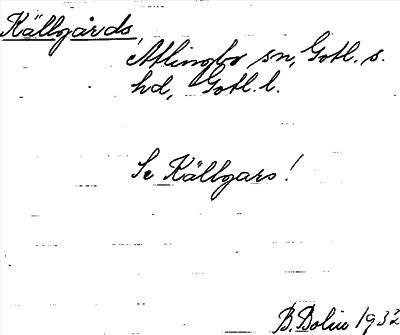 Källgårds,
Atlingbo sn, Gotl. s.
hd, Gotl. l.
Se Källgars!
B. Bolin 1932